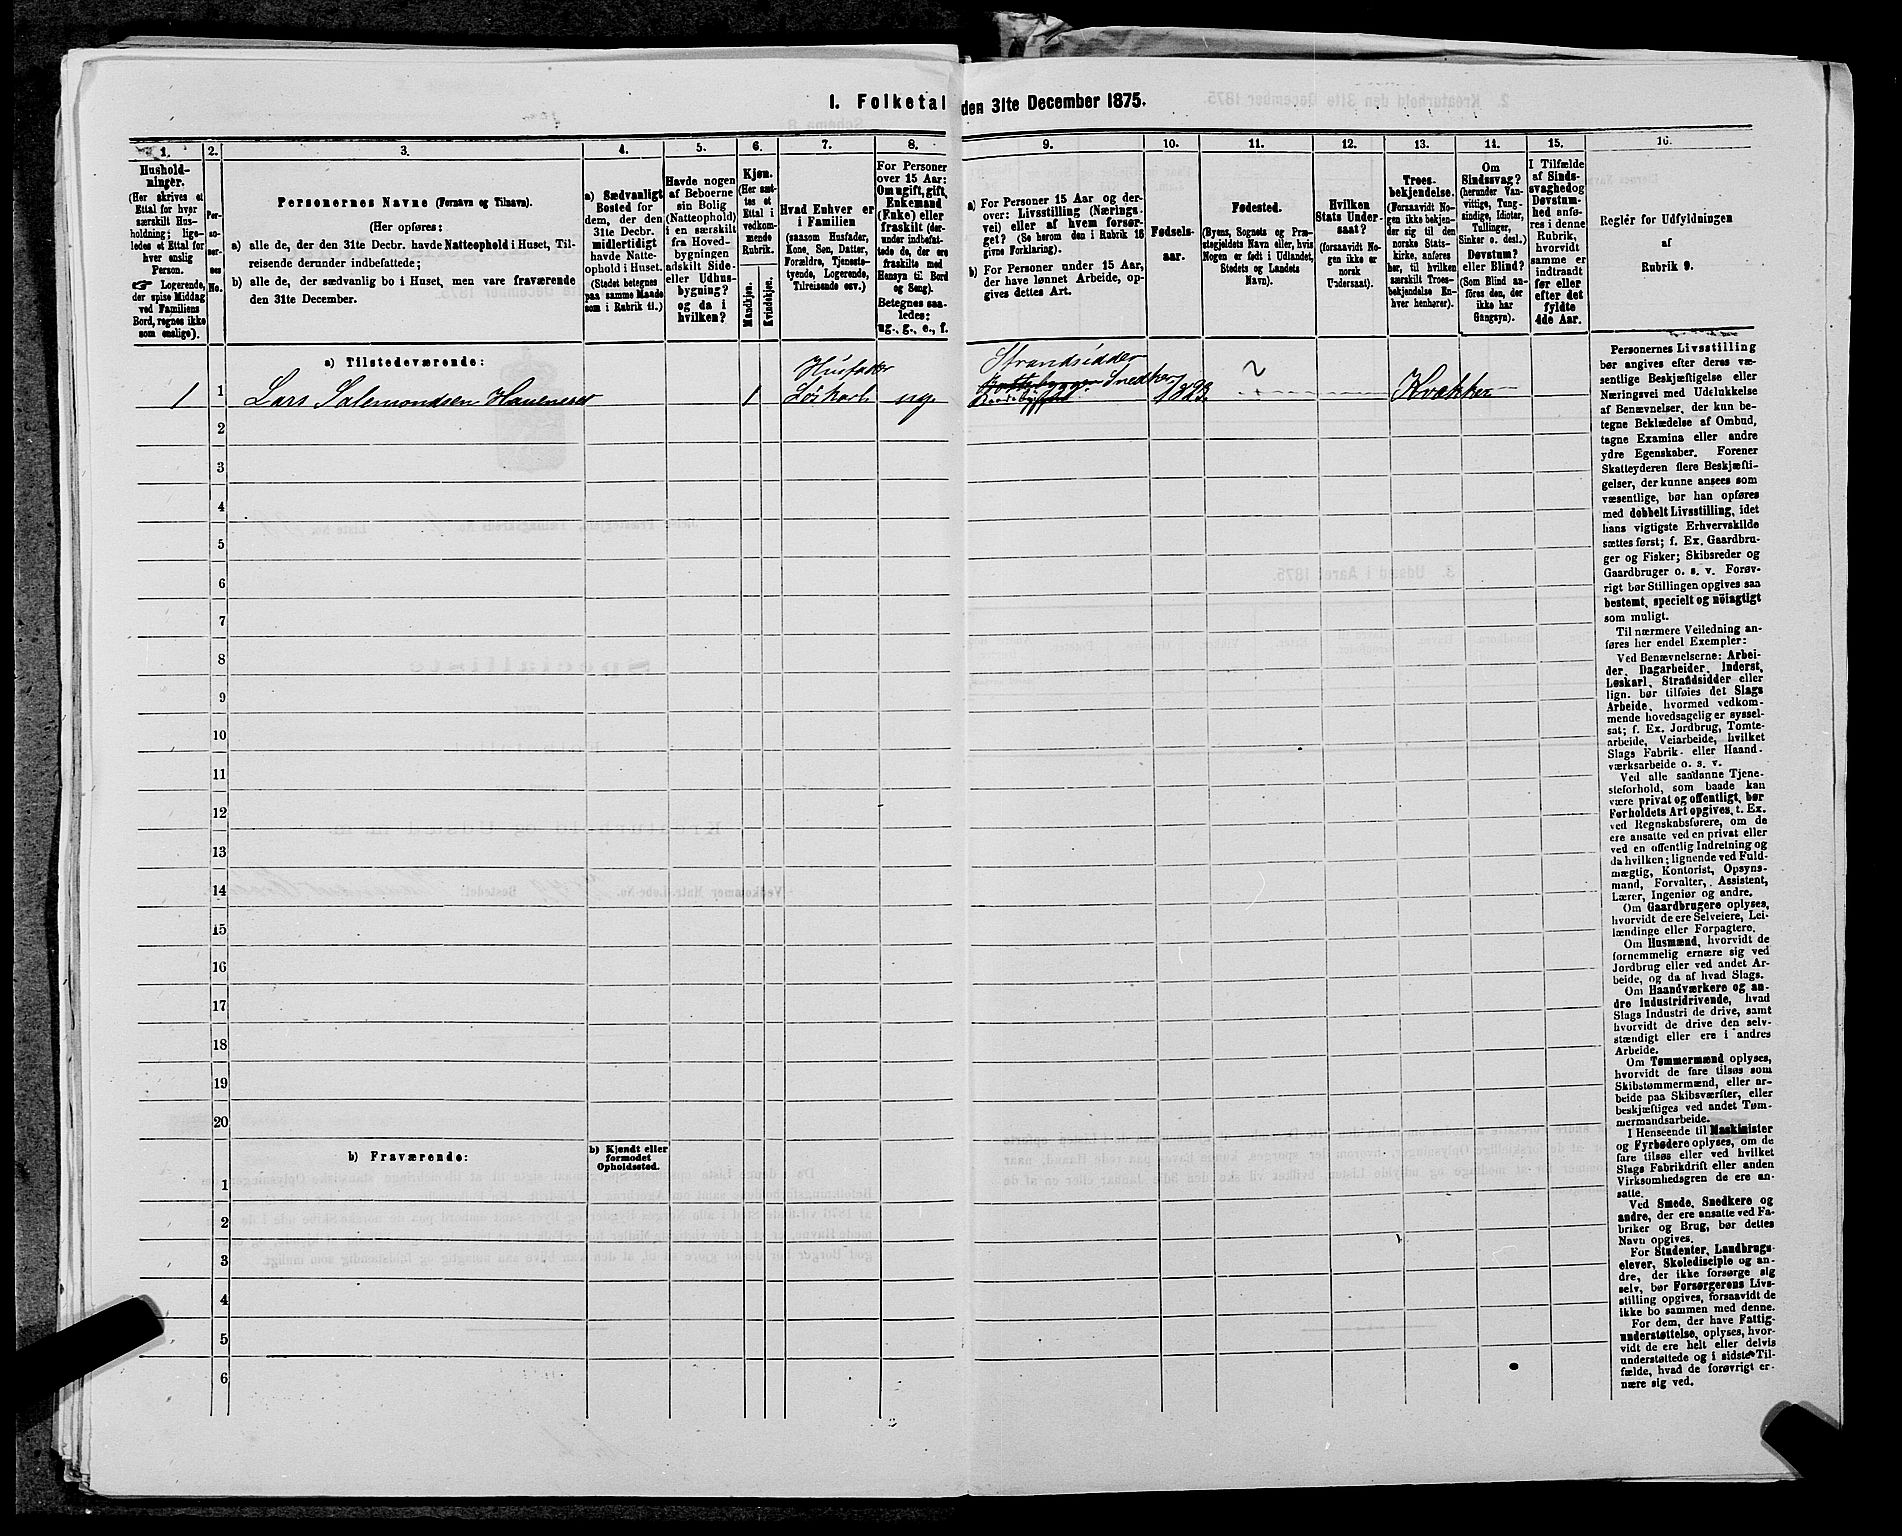 1. Folketal den 31te December 1875.
1.
2.
3.
4.
5.
6.
7.
8.
9.
10.
11.
12.
13.
14.
15.
16.
Hushold-
ninger.
(Her skrives et
Ettal for hver
særskilt Hus-
holdning; lige-
ledes et Ettal for
hver enslig
Person.
☞ Logerende,
der spise Middag
ved Familiens
Bord, regnes ikke
som enslige).
Per-
so-
ner-
nes
No.
Personernes Navne (Fornavn og Tilnavn).
(Her opføres:
a) alle de, der den 31te Decbr. havde Natteophold i Huset, Til-
reisende derunder indbefattede;
b) alle de, der sædvanlig bo i Huset, men vare fraværende
den 31te December.
a) Sædvanligt
Bosted for
dem, der den
31te Decbr.
midlertidigt
havde Natte-
ophold i Huset.
(Stedet betegnes
paa samme Maade
som i Rubrik 11.)
Havde nogen
af Beboerne
sin Bolig
(Natteophold)
i en særskilt
fra Hoved-
bygningen
adskilt Side-
eller Udhus-
bygning?
og da i
hvilken?
Kjøn.
(Her sæt-
tes et
Ettal i
vedkom-
mende
Rubrik.
Mandkjøn.
Kvindekjøn.
Hvad Enhver er
i Familien
(saasom Husfader,
Kone, Søn, Datter,
Forældre, Tjeneste-
tyende, Logerende,
Tilreisende osv.)
For Personer
over 15 Aar:
Om ugift, gift,
Enkemand
(Enke) eller
fraskilt (der-
under indbefat-
tede de, der ere
fraskilte med
Hensyn til Bord
og Seng).
Betegnes saa-
ledes:
ug., g., e., f.
a) For Personer 15 Aar og der-
over: Livsstilling (Nærings-
vei) eller af hvem forsør-
get? (Se herom den i Rubrik 16
givne Forklaring).
b) For Personer under 15 Aar,
der have lønnet Arbeide, op-
gives dettes Art.
Fødsels-
aar.
Fødested.
(Byens, Sognets og Præ-
stegjeldets Navn eller, hvis
Nogen er født i Udlandet,
Stedets og Landets
Navn).
Hvilken
Stats Under-
saat?
(forsaavidt No-
gen ikke er
norsk
Undersaat).
Troes-
bekjendelse.
(Forsaavidt No-
gen ikke bekjen-
der sig til den
norske Stats-
kirke, anføres
her, til hvilken
særskilt Troes-
bekjendelse En-
hver henhører).
Om
Sindssvag?
(herunder Van-
vittige, Tung-
sindige, Idioter,
Tullinger,
Sinker o. desl.)
Døvstum?
eller Blind?
(Som Blind an-
føres den, der
ikke har
Gangsyn).
I Tilfælde
af Sinds-
svaghed og
Døvstum-
hed anfø-
res i denne
Rubrik,
hvorvidt
samme er
indtraadt
før eller
efter det
fyldte
4de Aar.
Regler for Udfyldningen
af
Rubrik 9.
a) Tilstedeværende:
Husfader
Strandsidder
1 1 Lars Salemondsen Havneset 1 Løskarl ug Snedker 1823 Kvækker
2
3
4
5
6
7
8
9
10
11
12
13
14
15
16
17
18
19
20
b) Fraværende:
b) Kjendt eller
formodet
Opholdssted.
1
2
3
4
5
6
Personernes Livsstilling
bør angives efter deres væ-
sentlige Beskjæftigelse eller
Næringsvei med Udelukkelse
af Benævnelser, der kun be-
tegne Beklædelse af Ombud,
tagne Examina eller andre
ydre Egenskaber. Forener
Skatteyderen flere Beskjæfti-
gelser, der kunne ansees som
væsentlige, bør han opføres
med dobbelt Livsstilling, idet
hans vigtigste Erhvervskilde
sættes først; f. Ex. Gaardbru-
ger og Fisker; Skibsreder og
Gaardbruger o. s. v. Forøv-
rigt bør Stillingen opgives saa
bestemt, specielt og nöiagtigt
som muligt.
Til nærmere Veiledning an-
føres her endel Exempler:
Ved Benævnelserne: Arbei-
der, Dagarbeider, Inderst,
Løskarl, Strandsidder eller
lign. bør tilføies det Slags
Arbeide, hvormed vedkom-
mende hovedsagelig er syssel-
sat; f. Ex. Jordbrug, Tomte-
arbeide, Veiarbeide, hvilket
Slags Fabrik- eller Haand-
værksarbeide o. s. v.
Ved alle saadanne Tjene-
steforhold, som baade kan
være privat og offentligt, bør
Forholdets Art opgives, t. Ex.
ved Regnskabsførere, om de
ere ansatte ved en privat eller
ved en offentlig Indretning og
da hvilken; lignende ved Fuld-
mægtig, Kontorist, Opsyns-
mand, Forvalter, Assistent,
Lærer, Ingeniør og andre.
Om Gaardbrugere oplyses,
hvorvidt de ere Selveiere, Lei-
lændinge eller Forpagtere.
Om Husmænd, hvorvidt de
fornemmelig ernære sig ved
Jordbrug eller ved andet Ar-
beide, og da af hvad Slags.
Om Haandværkere og an-
dre Industridrivende, hvad
Slags Industri de drive, samt
hvorvidt de drive den selv-
stændigt eller ere i andres
Arbeide.
Om Tømmermænd oplyses,
hvorvidt de fare tilsøs som
Skibstømmermænd, eller ar-
beide paa Skibsværfter, eller
beskjæftiges ved andet Tøm-
mermandsarbeide.
I Henseende til Maskinister
og Fyrbødere oplyses, om de
fare tilsøs eller ved hvilket
Slags Fabrikdrift eller anden
Virksomhedsgren de ere an-
satte.
Ved Smede, Snedkere og
andre, der ere ansatte ved Fa-
briker og Brug, bør dettes
Navn opgives.
For Studenter, Landbrugs-
elever, Skoledisciple og an-
dre, der ikke forsørge sig
selv, bør Forsørgerens Livs-
stilling opgives, forsaavidt de
ikke bo sammen med denne.
For dem, der have Fattig-
understøttelse, oplyses, hvor-
vidt de ere helt eller delvis
understøttede og i sidste Til-
fælde, hvad de forøvrigt er-
nære sig ved.